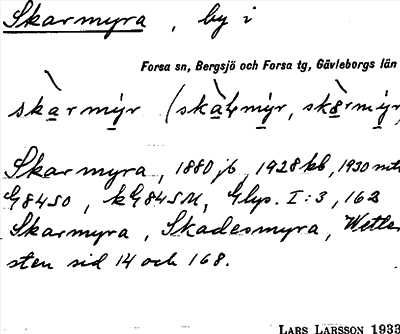 Skarmyra, by i
Forsa sn, Bergsjö och Forsa tg, Gävleborgs län
Skarmyra, 1880 jb, 1928 kb, 1930 mtl
G84SO, kG84SU, Glys. I:3, 162
Skarmyra, Skadesmyra, Wetter
sten sid 14 och 168.
LARS LARSSON 1933